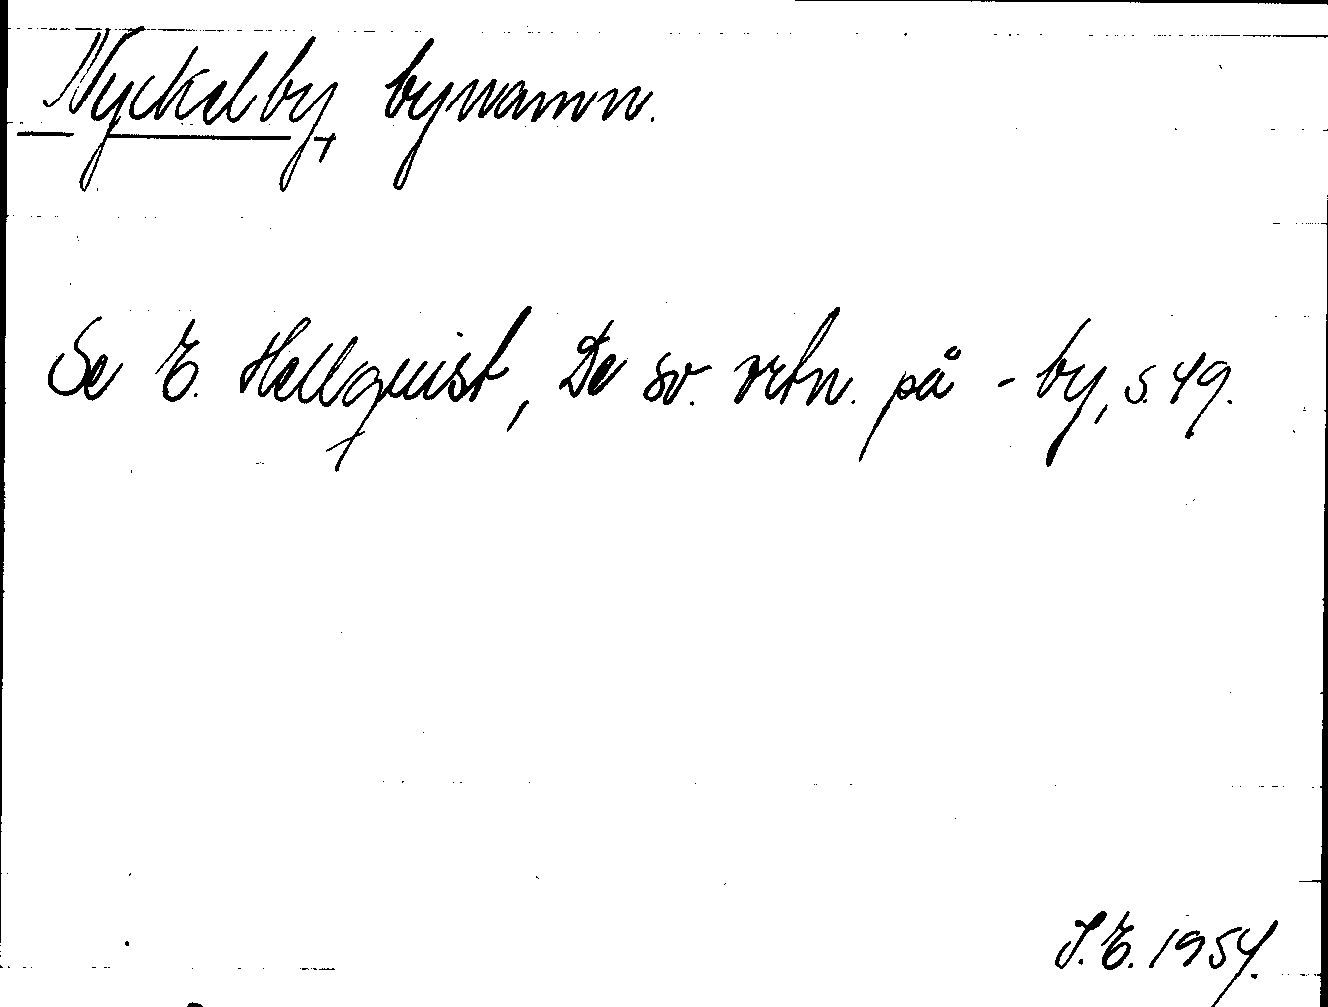 Nyckelby, bynamn.
Se E. Hellquist, De sv. ortn. på -by, s. 49.
S.E. 1954.